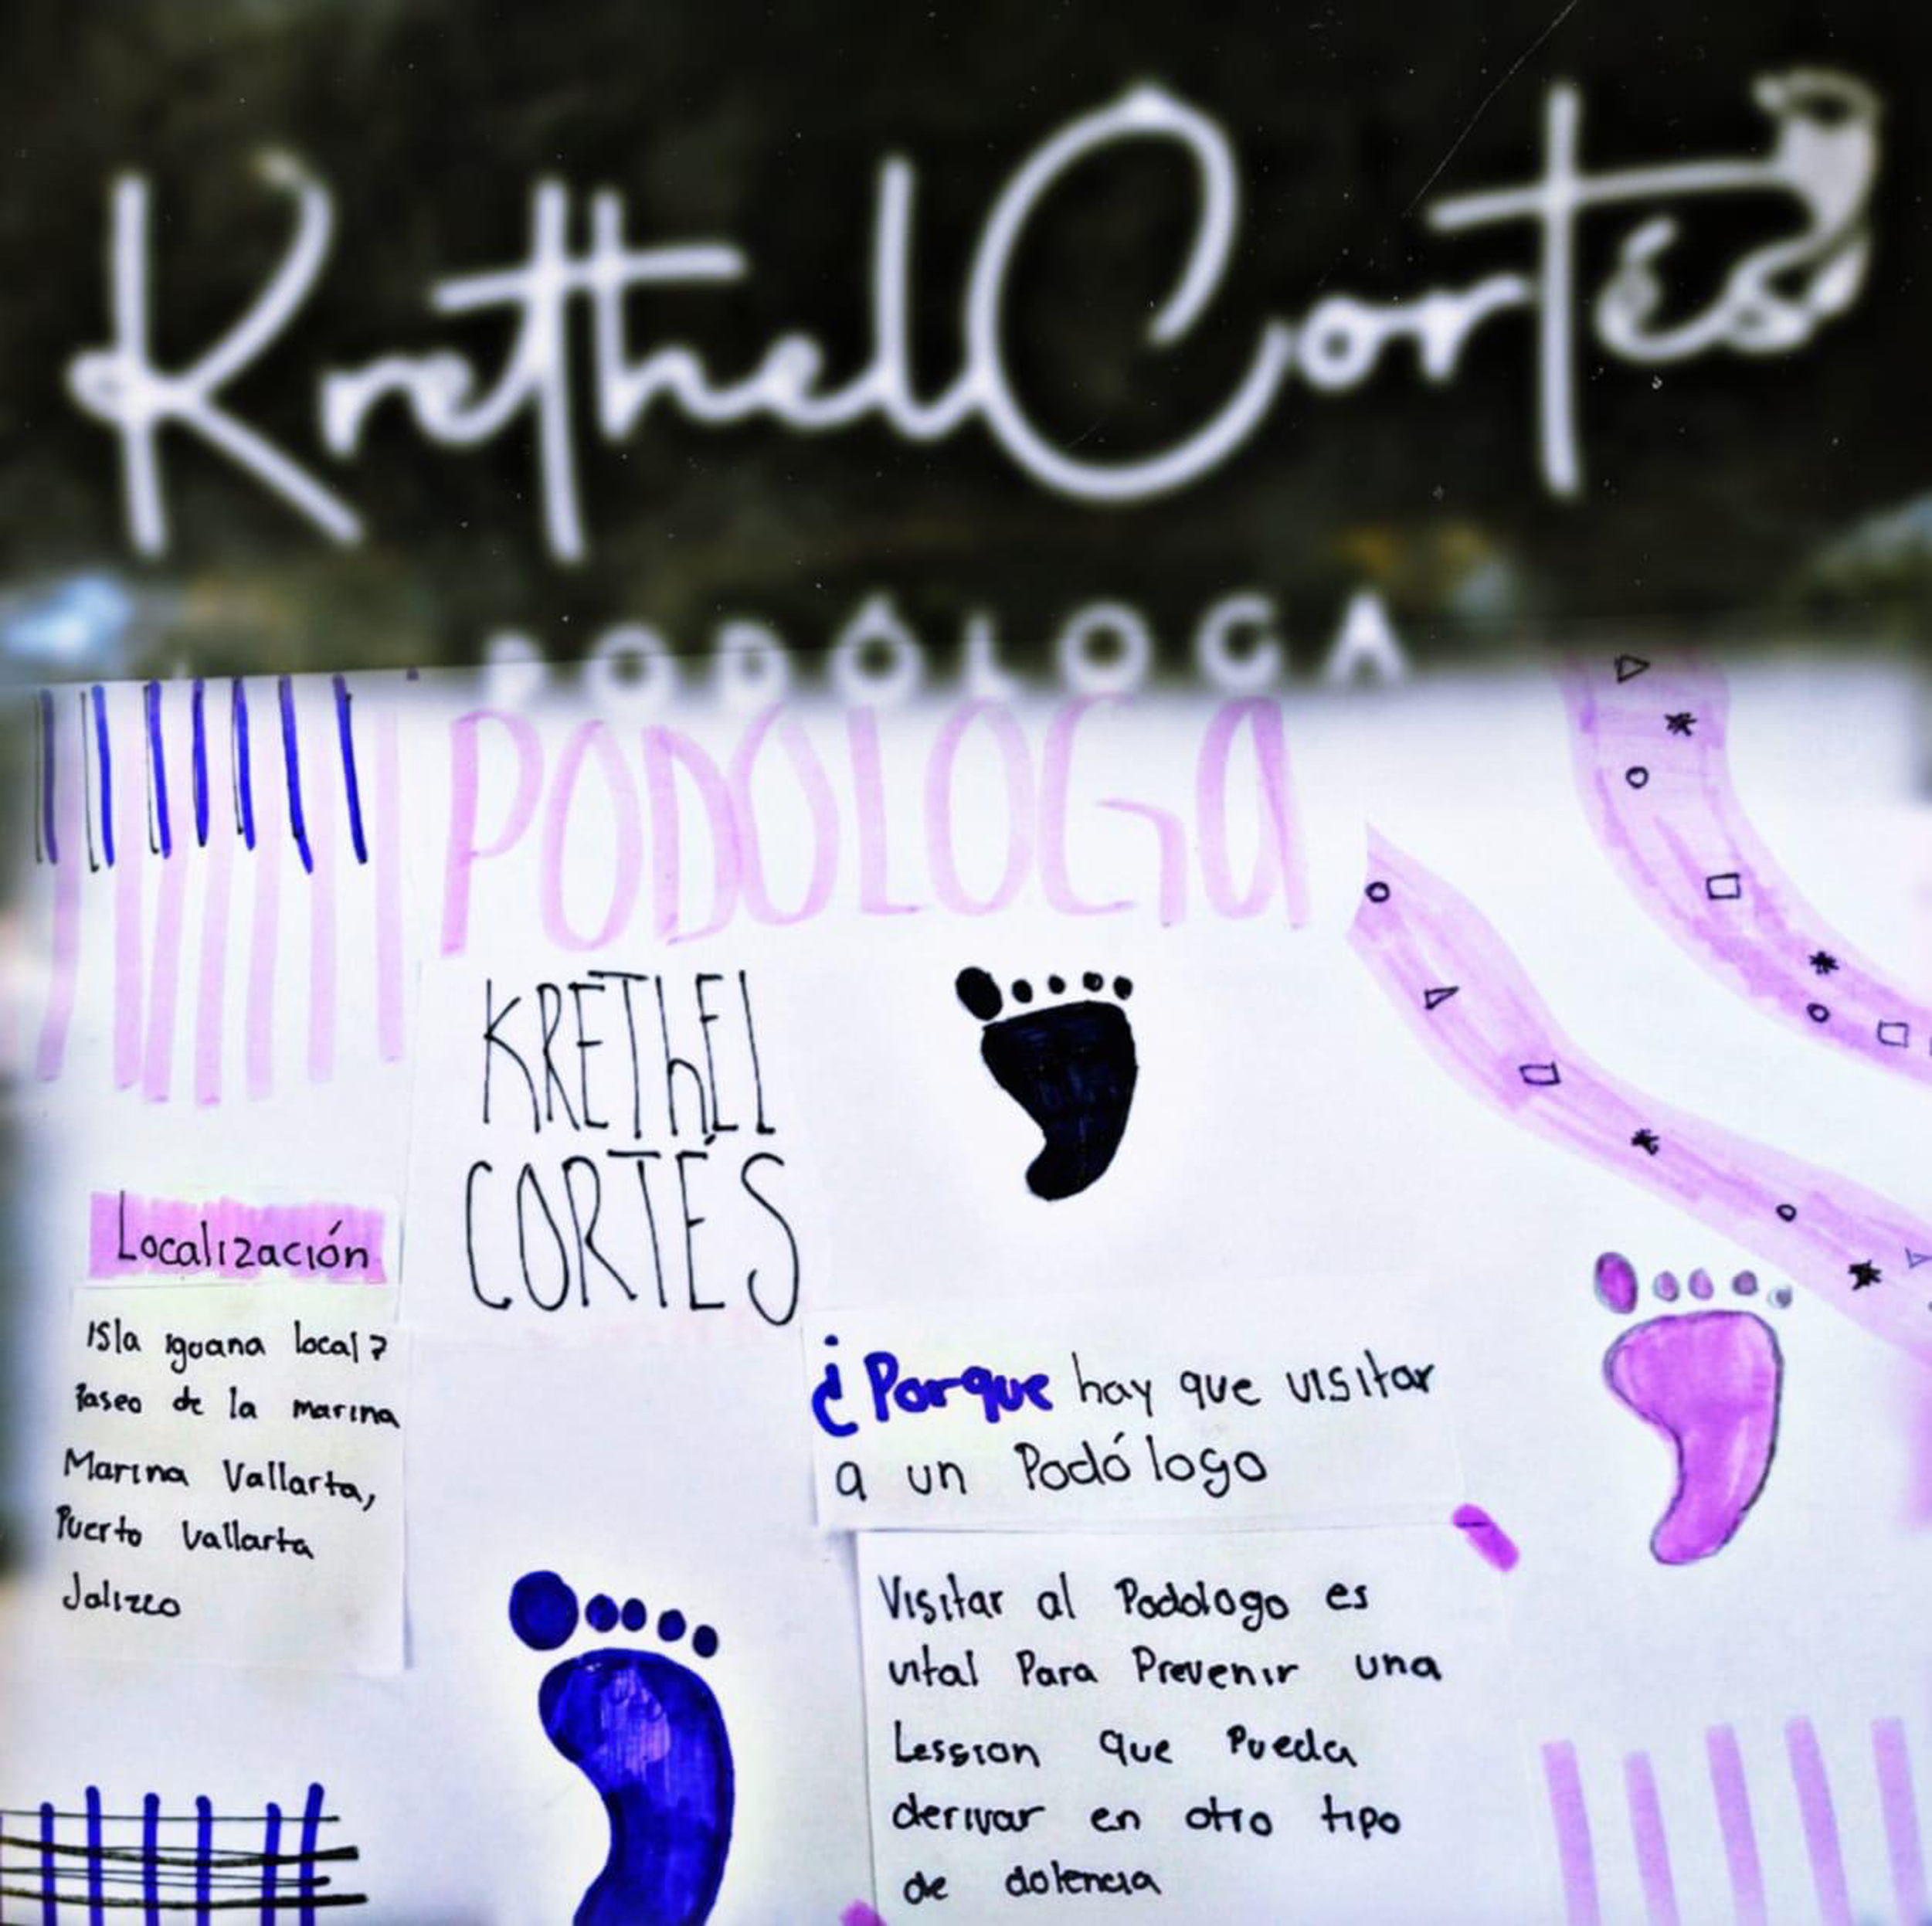 Krethel Cortés
PODÓLOGA
PODOLOGA
KREThEl
CORTÉS
Localización
Isla iguana local 7
Paseo de la marina
Marina Vallarta,
Puerto Vallarta
Jalizco
¿Porque hay que visitar
a un Podólogo
Visitar al Podologo es
vital Para Prevenir una
Lession que Pueda
derivar en otro tipo
de dolencia